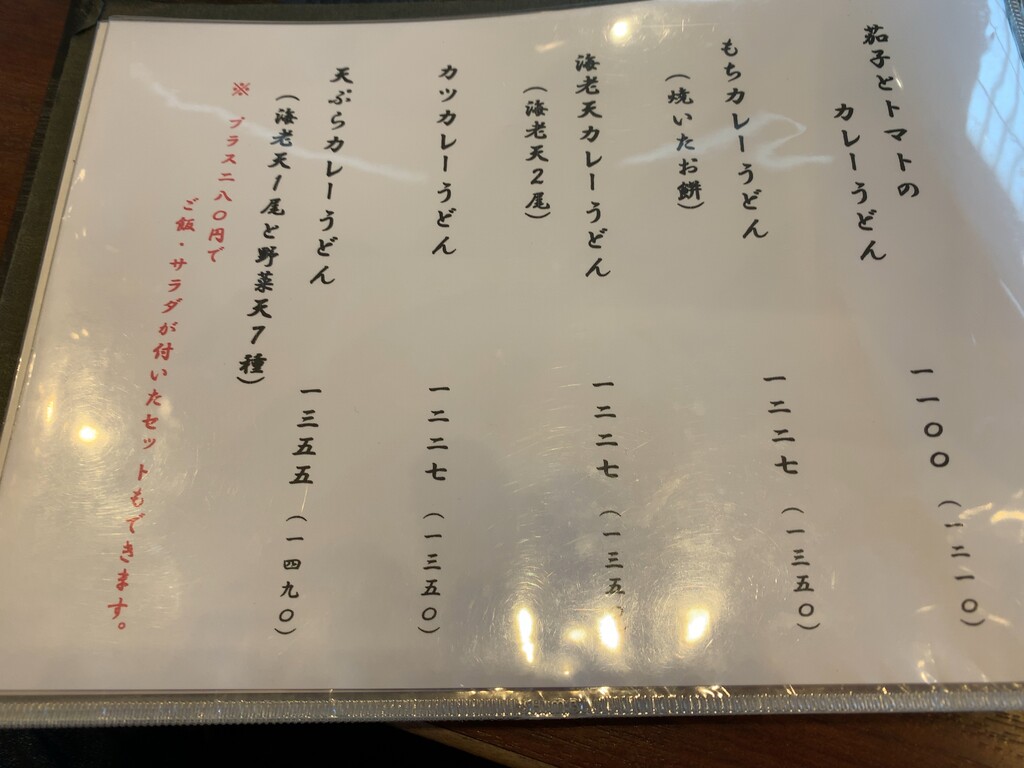 茄子とトマトの
カレーうどん
一一〇〇
（一二一〇）
もちカレーうどん
（焼いたお餅）
一二二七
（一三五〇）
海老天カレーうどん
（海老天2尾）
一二二七
（一三五
カツカレーうどん
一二二七
（一三五〇）
天ぷらカレーうどん
（海老天1尾と野菜天7種）
一三五五
（一四九〇）
※ プラス二八〇円で
ご飯・サラダが付いたセットもできます。